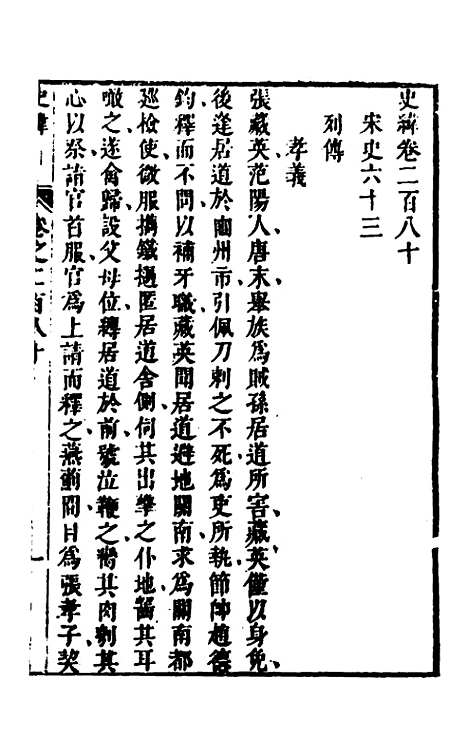 史緯卷二百八十
宋史六十三
列傳
孝義
張藏英范陽人唐末舉族爲賊孫居道所害藏英僅以身免
後逢居道於幽州市引佩刀刺之不死爲吏所執節帥趙德
鈞釋而不問以補牙職藏英聞居道避地關南求爲關南都
廵檢使微服攜鐵檛匿居道舍側伺其出擊之仆地齧其耳
噉之遂禽歸設父母位縛居道於前號泣鞭之臠其肉剚其
心以祭請官首服官爲上請而釋之燕薊間目爲張孝子契
史緯 卷之二百八十